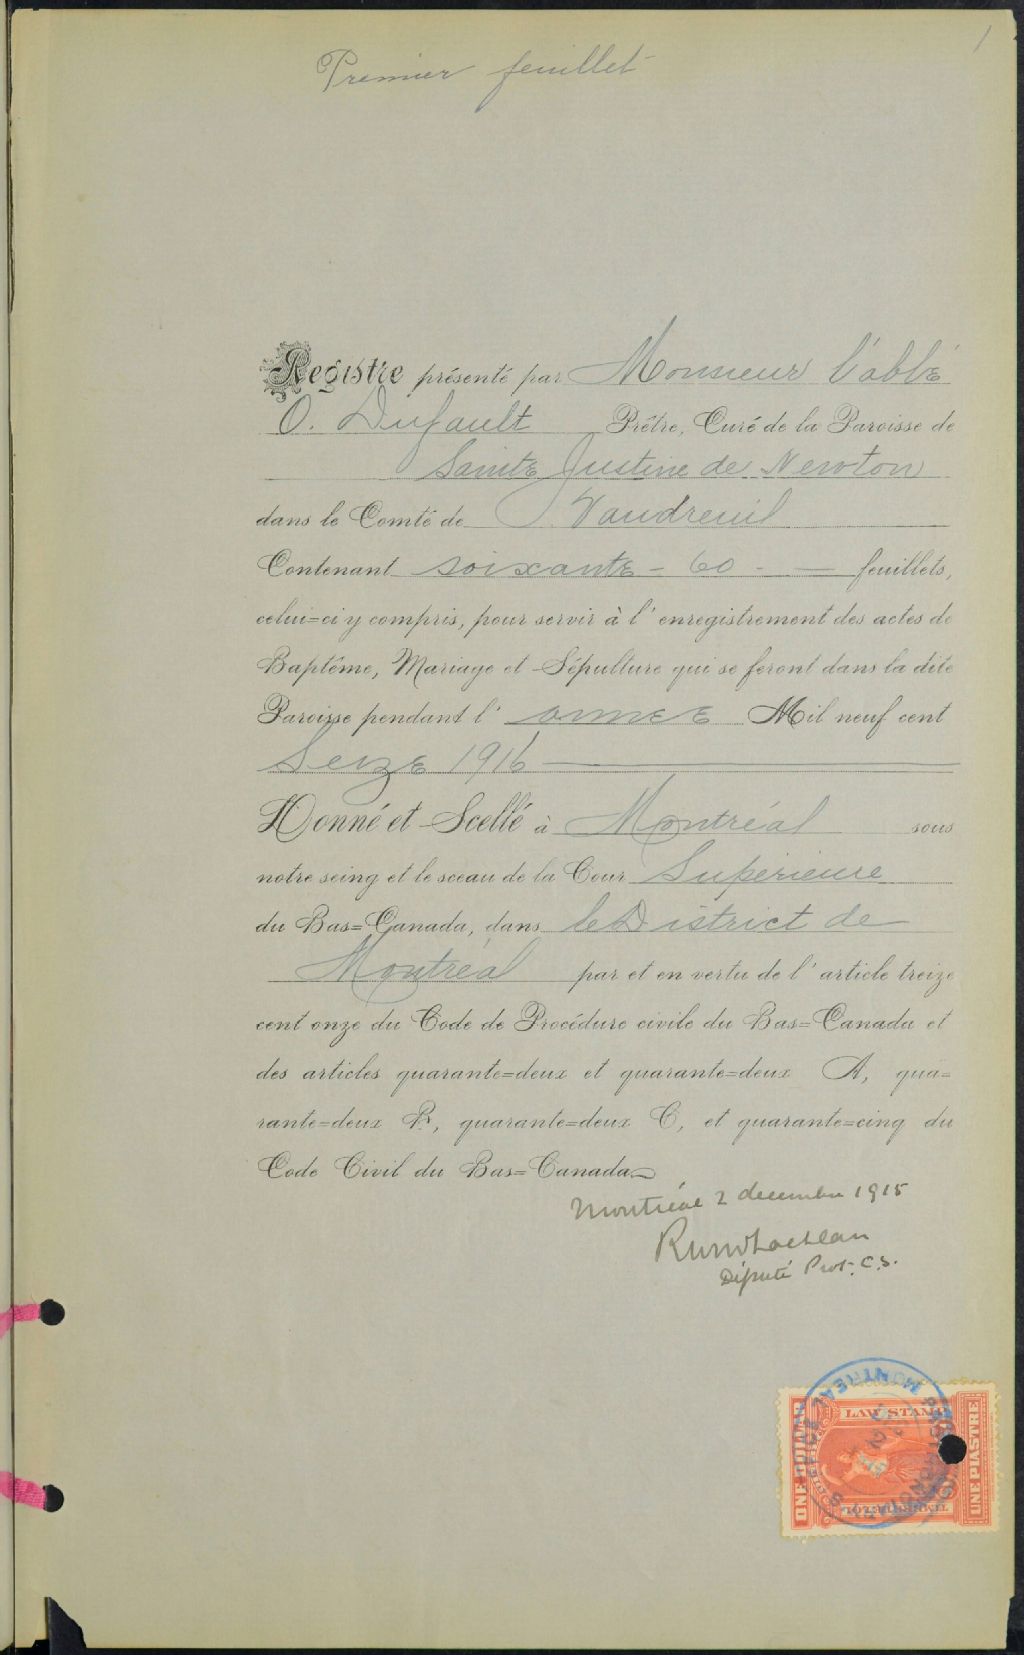 1
Premier feuillet
Registre présenté par Monsieur l'abbé
O. Dufault Prêtre, Curé de la Paroisse de
Sainte Justine de Newton
dans le Comté de Vaudreuil
Contenant soixante - 60 - feuillets,
celui=ci y compris, pour servir à l'enregistrement des actes de
Baptême, Mariage et Sépulture qui se feront dans la dite
Paroisse pendant l'annee Mil neuf cent
Seize 1916
Donné et Scellé à Montréal sous
notre seing et le sceau de la Cour Supérieure
du Bas=Canada, dans le District de
Montréal par et en vertu de l'article treize
cent onze du Code de Procédure civile du Bas=Canada et
des articles quarante=deux et quarante=deux A, qua=
rante=deux B, quarante=deux C, et quarante=cinq du
Code Civil du Bas=Canada
Montréal 2 decembre 1915
Député Prot. C.S.
LAW STAMP
ONE DOLLAR
UNE PIASTRE
MONTREAL